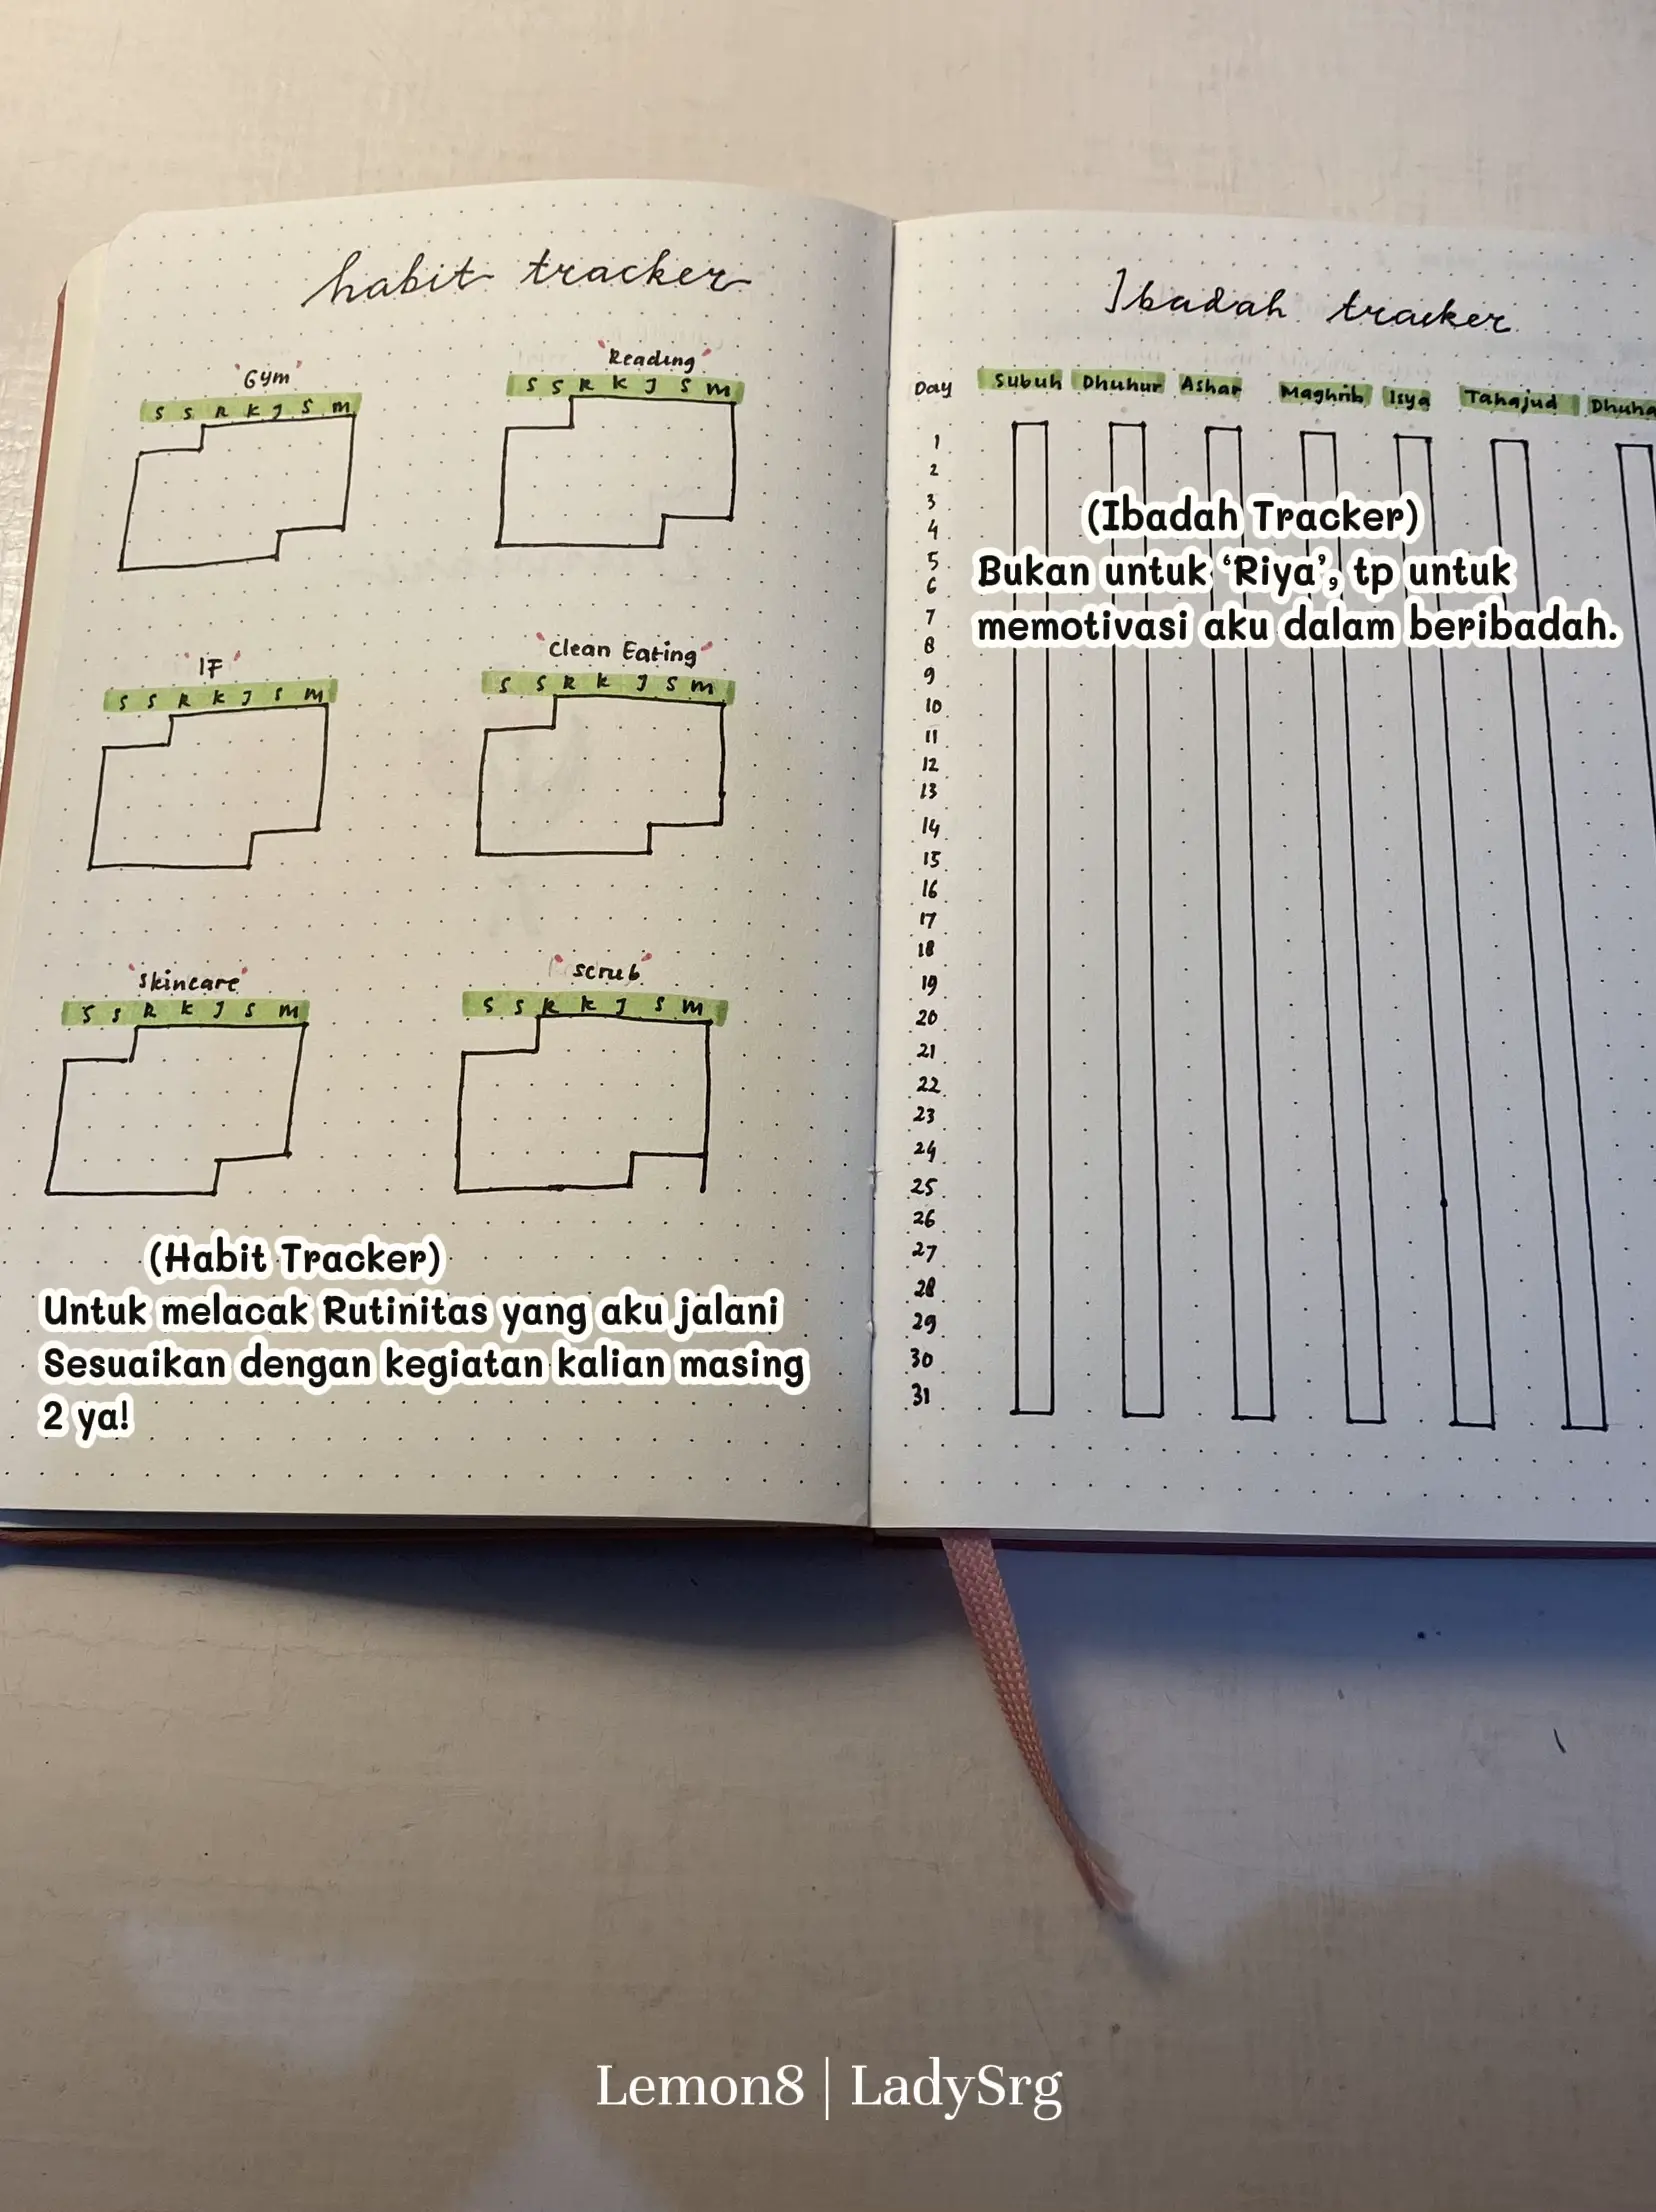 habit tracker
'Gym'
S S R K J S M
'Reading'
S S R K J S M
'IF'
S S R K J S M
'Clean Eating'
S S R K J S M
'Skincare'
S S R K J S M
'Scrub'
S S R K J S M
(Habit Tracker)
Untuk melacak Rutinitas yang aku jalani
Sesuaikan dengan kegiatan kalian masing
2 ya!
Ibadah tracker
Day Subuh Dhuhur Ashar Maghrib Isya Tahajud Dhuha
1
2
3
4
5
6
7
8
9
10
11
12
13
14
15
16
17
18
19
20
21
22
23
24
25
26
27
28
29
30
31
(Ibadah Tracker)
Bukan untuk ‘Riya’, tp untuk
memotivasi aku dalam beribadah.
Lemon8 | LadySrg